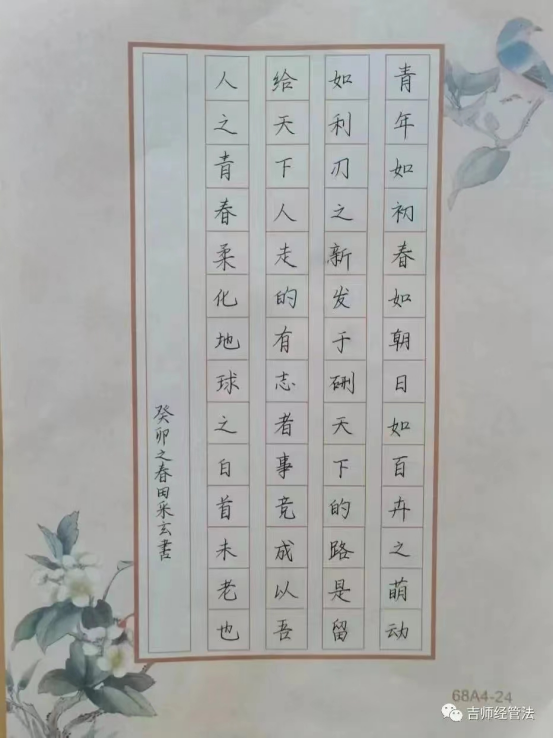 青年如初春如朝日如百卉之萌动
如利刃之新发于硎天下的路是留
给天下人走的有志者事竞成以吾
人之青春柔化地球之白首未老也
癸卯之春田采玄书
68A4-24
吉师经管法